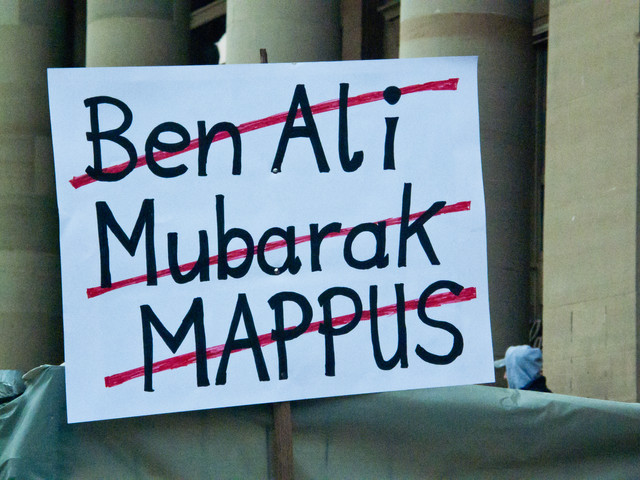 Ben Ali
Mubarak
MAPPUS